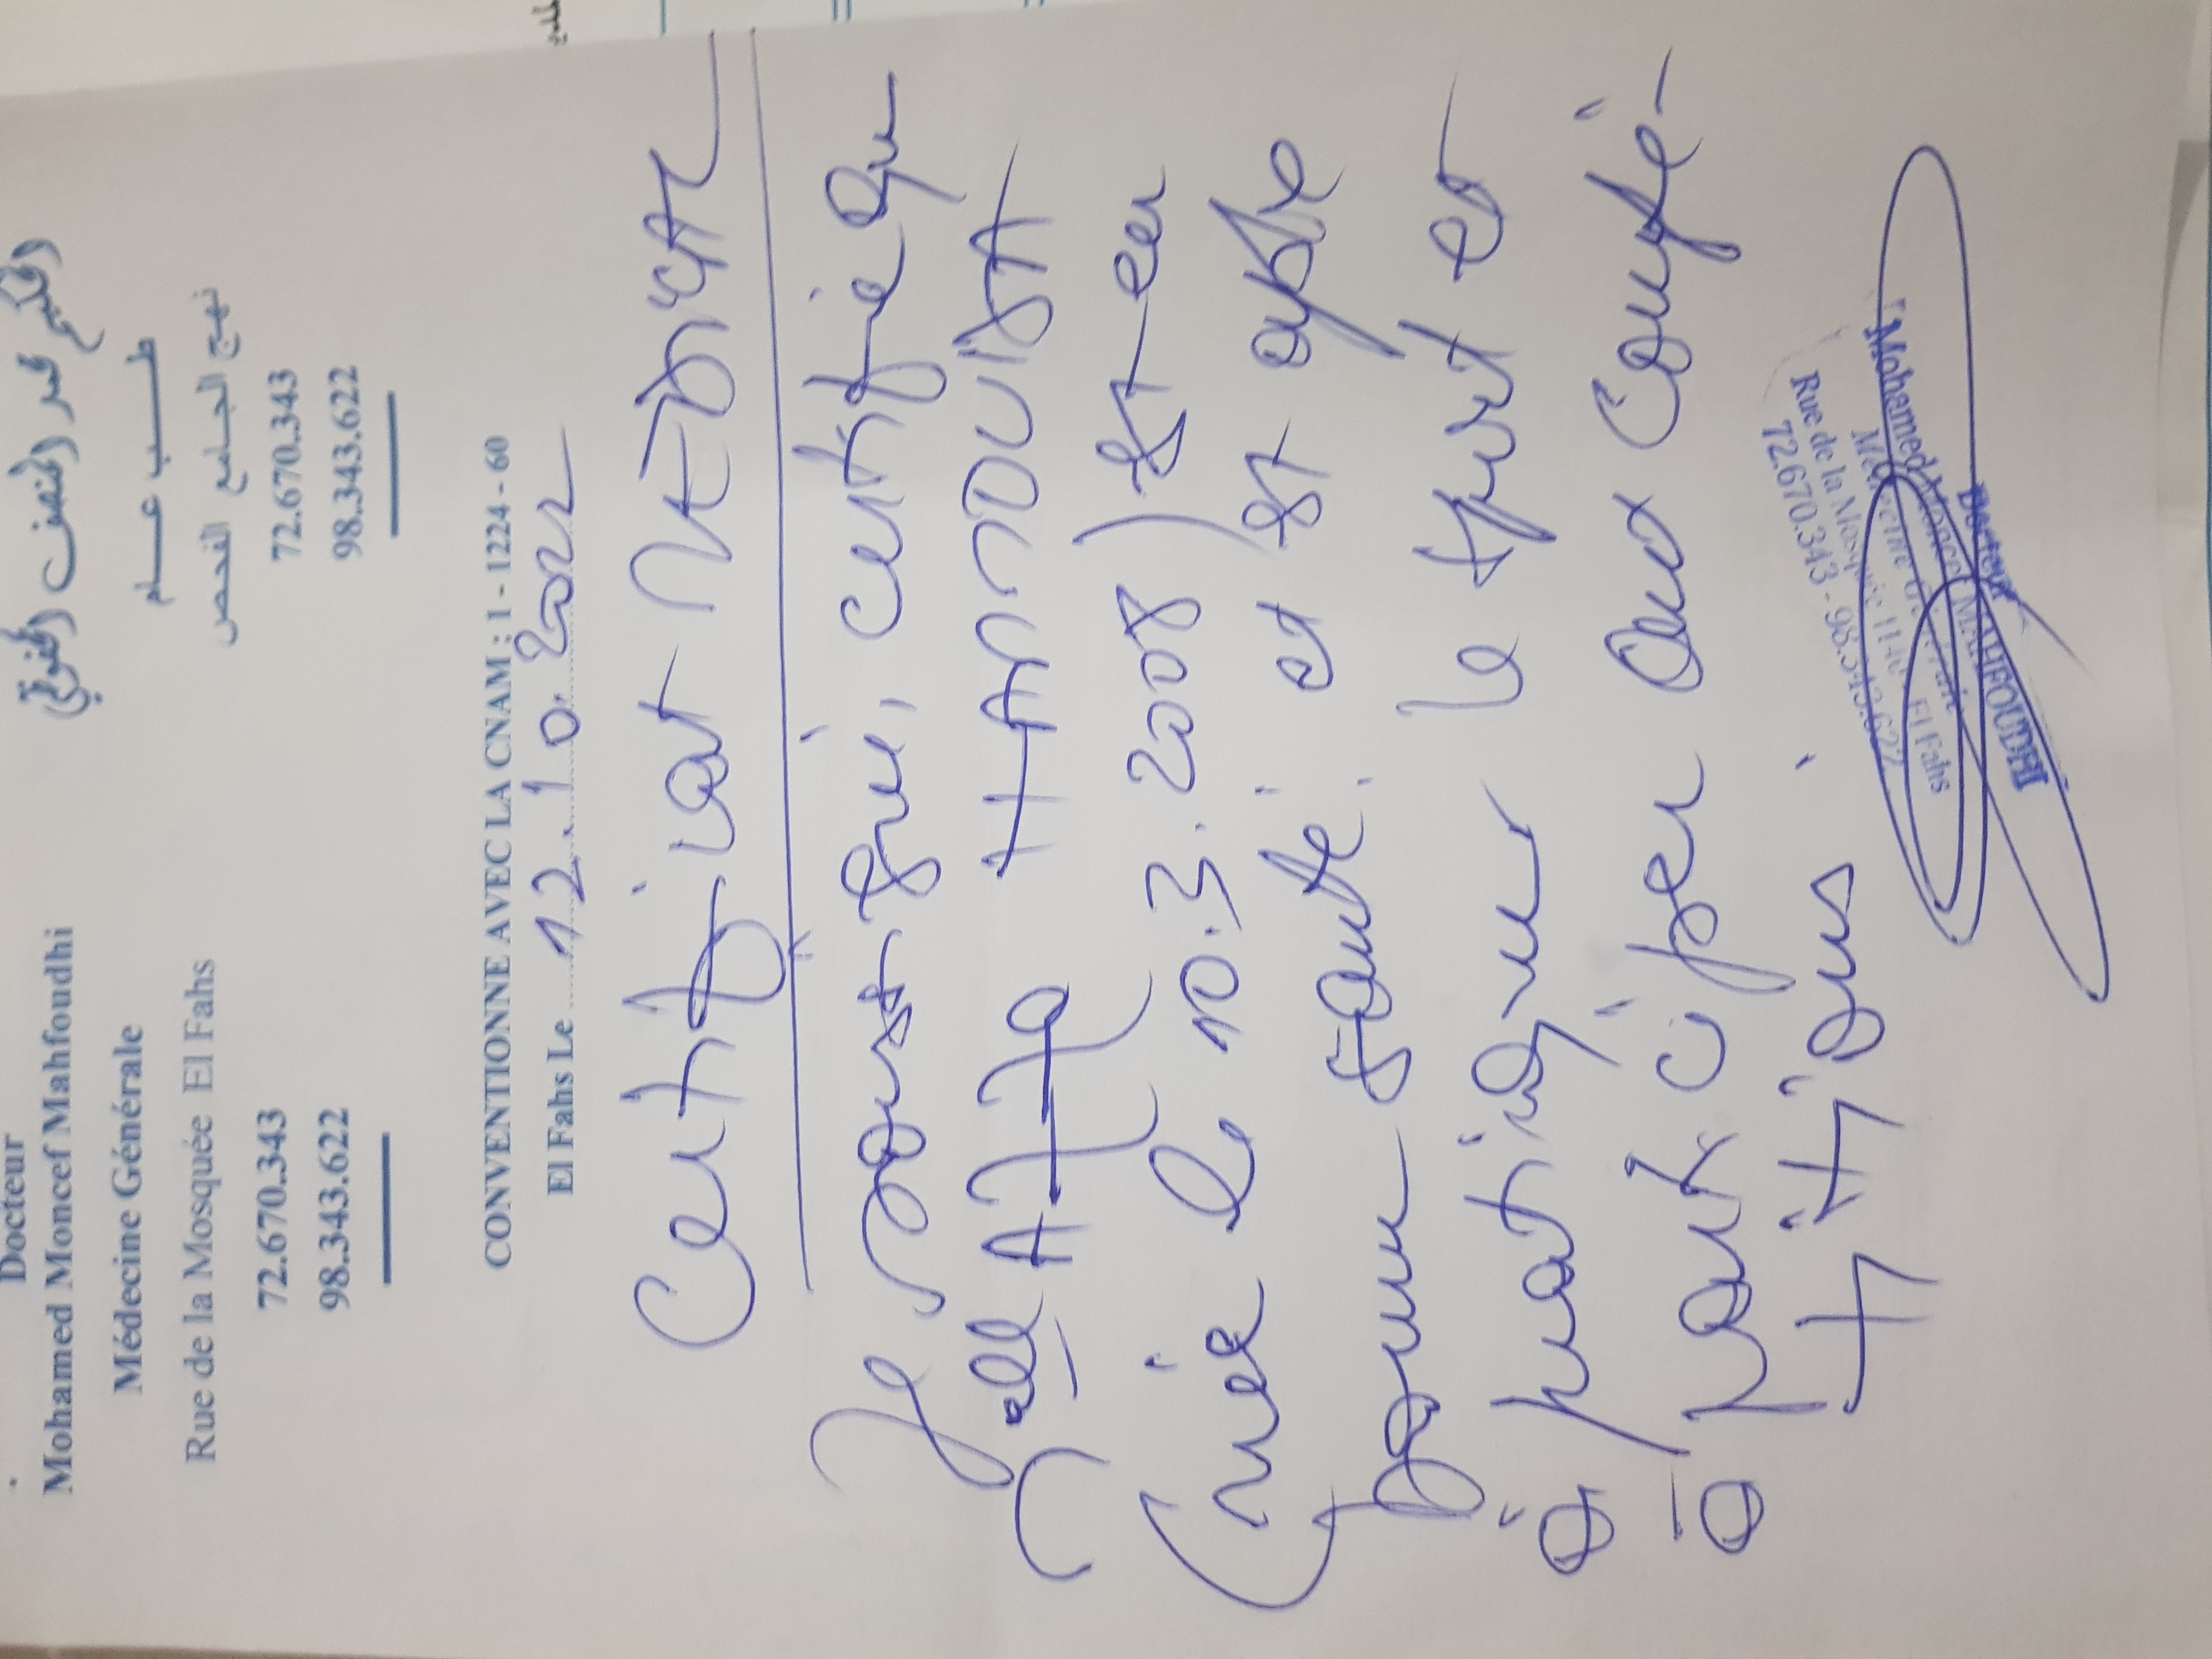 Docteur
Mohamed Moncef Mahfoudhi
Médecine Générale
Rue de la Mosquée El Fahs
72.670.343
98.343.622
الحكيم محمد المنصف المحفوظي
طـــب عـــام
نهج الجامع الفحص
72.670.343
98.343.622
CONVENTIONNE AVEC LA CNAM : 1 - 1224 - 60
El Fahs Le 12.10.2022
Certificat
Je soussigné, certifie que
(née le 10.3.2008) est en
bonne santé et est apte
à pratiquer le sport et
à participer aux compé-
titions
Docteur
Mohamed Moncef MAHFOUDHI
Médecine Générale
Rue de la Mosquée 1140 El Fahs
72.670.343 - 98.343.622